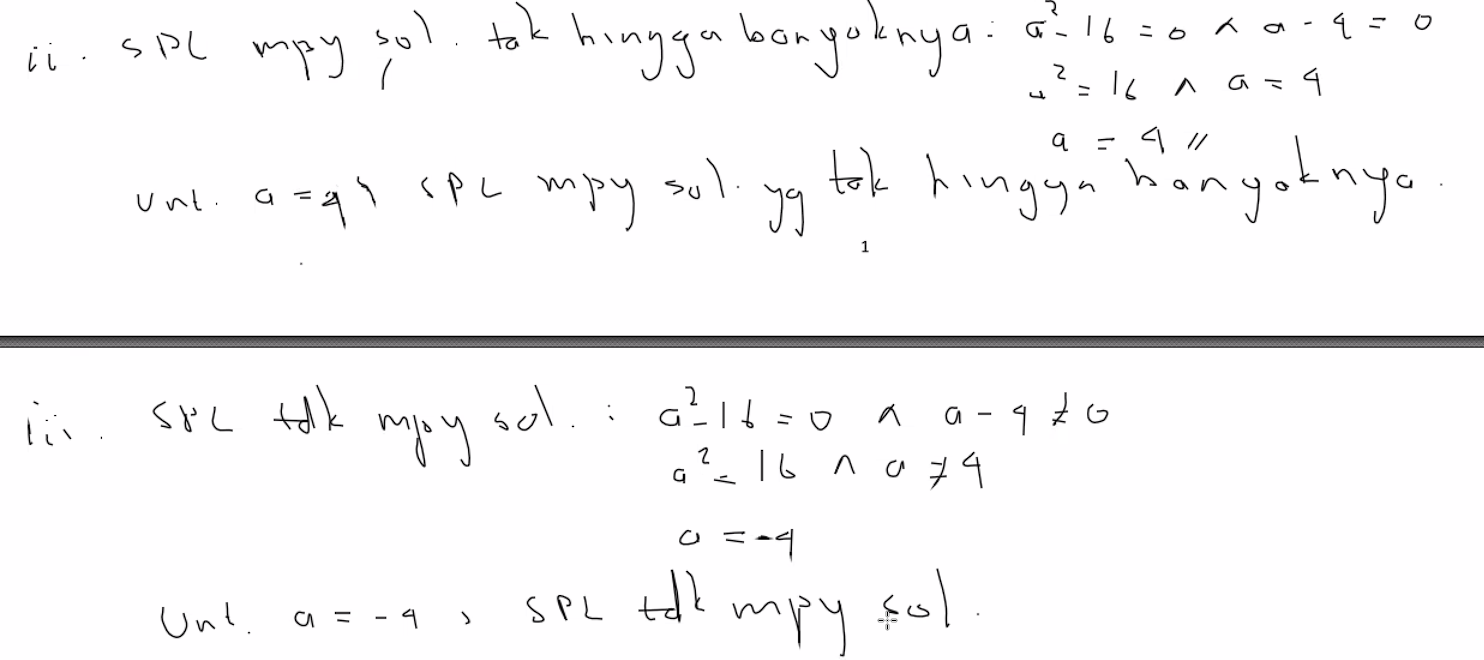 ii. SPL mpy sol. tak hingga banyaknya: a² - 16 = 0 ∧ a - 4 = 0
a² = 16 ∧ a = 4
a = 4 //
Unt. a = 4, SPL mpy sol. yg tak hingga banyaknya.
1
iii. SPL tdk mpy sol. : a² - 16 = 0 ∧ a - 4 ≠ 0
a² = 16 ∧ a ≠ 4
a = -4
Unt. a = -4, SPL tdk mpy sol.